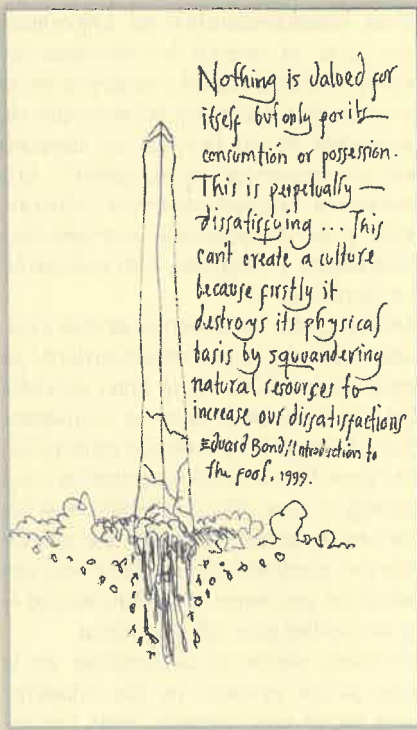 Nothing is Valued for
itself but only for its—
consumtion or possession.
This is perpetually —
dissatisfying ... This
can't create a culture
because firstly it
destroys its physical
basis by squandering
natural resources to—
increase our dissatisfactions
Edward Bond/Introduction to
The Fool. 1999.